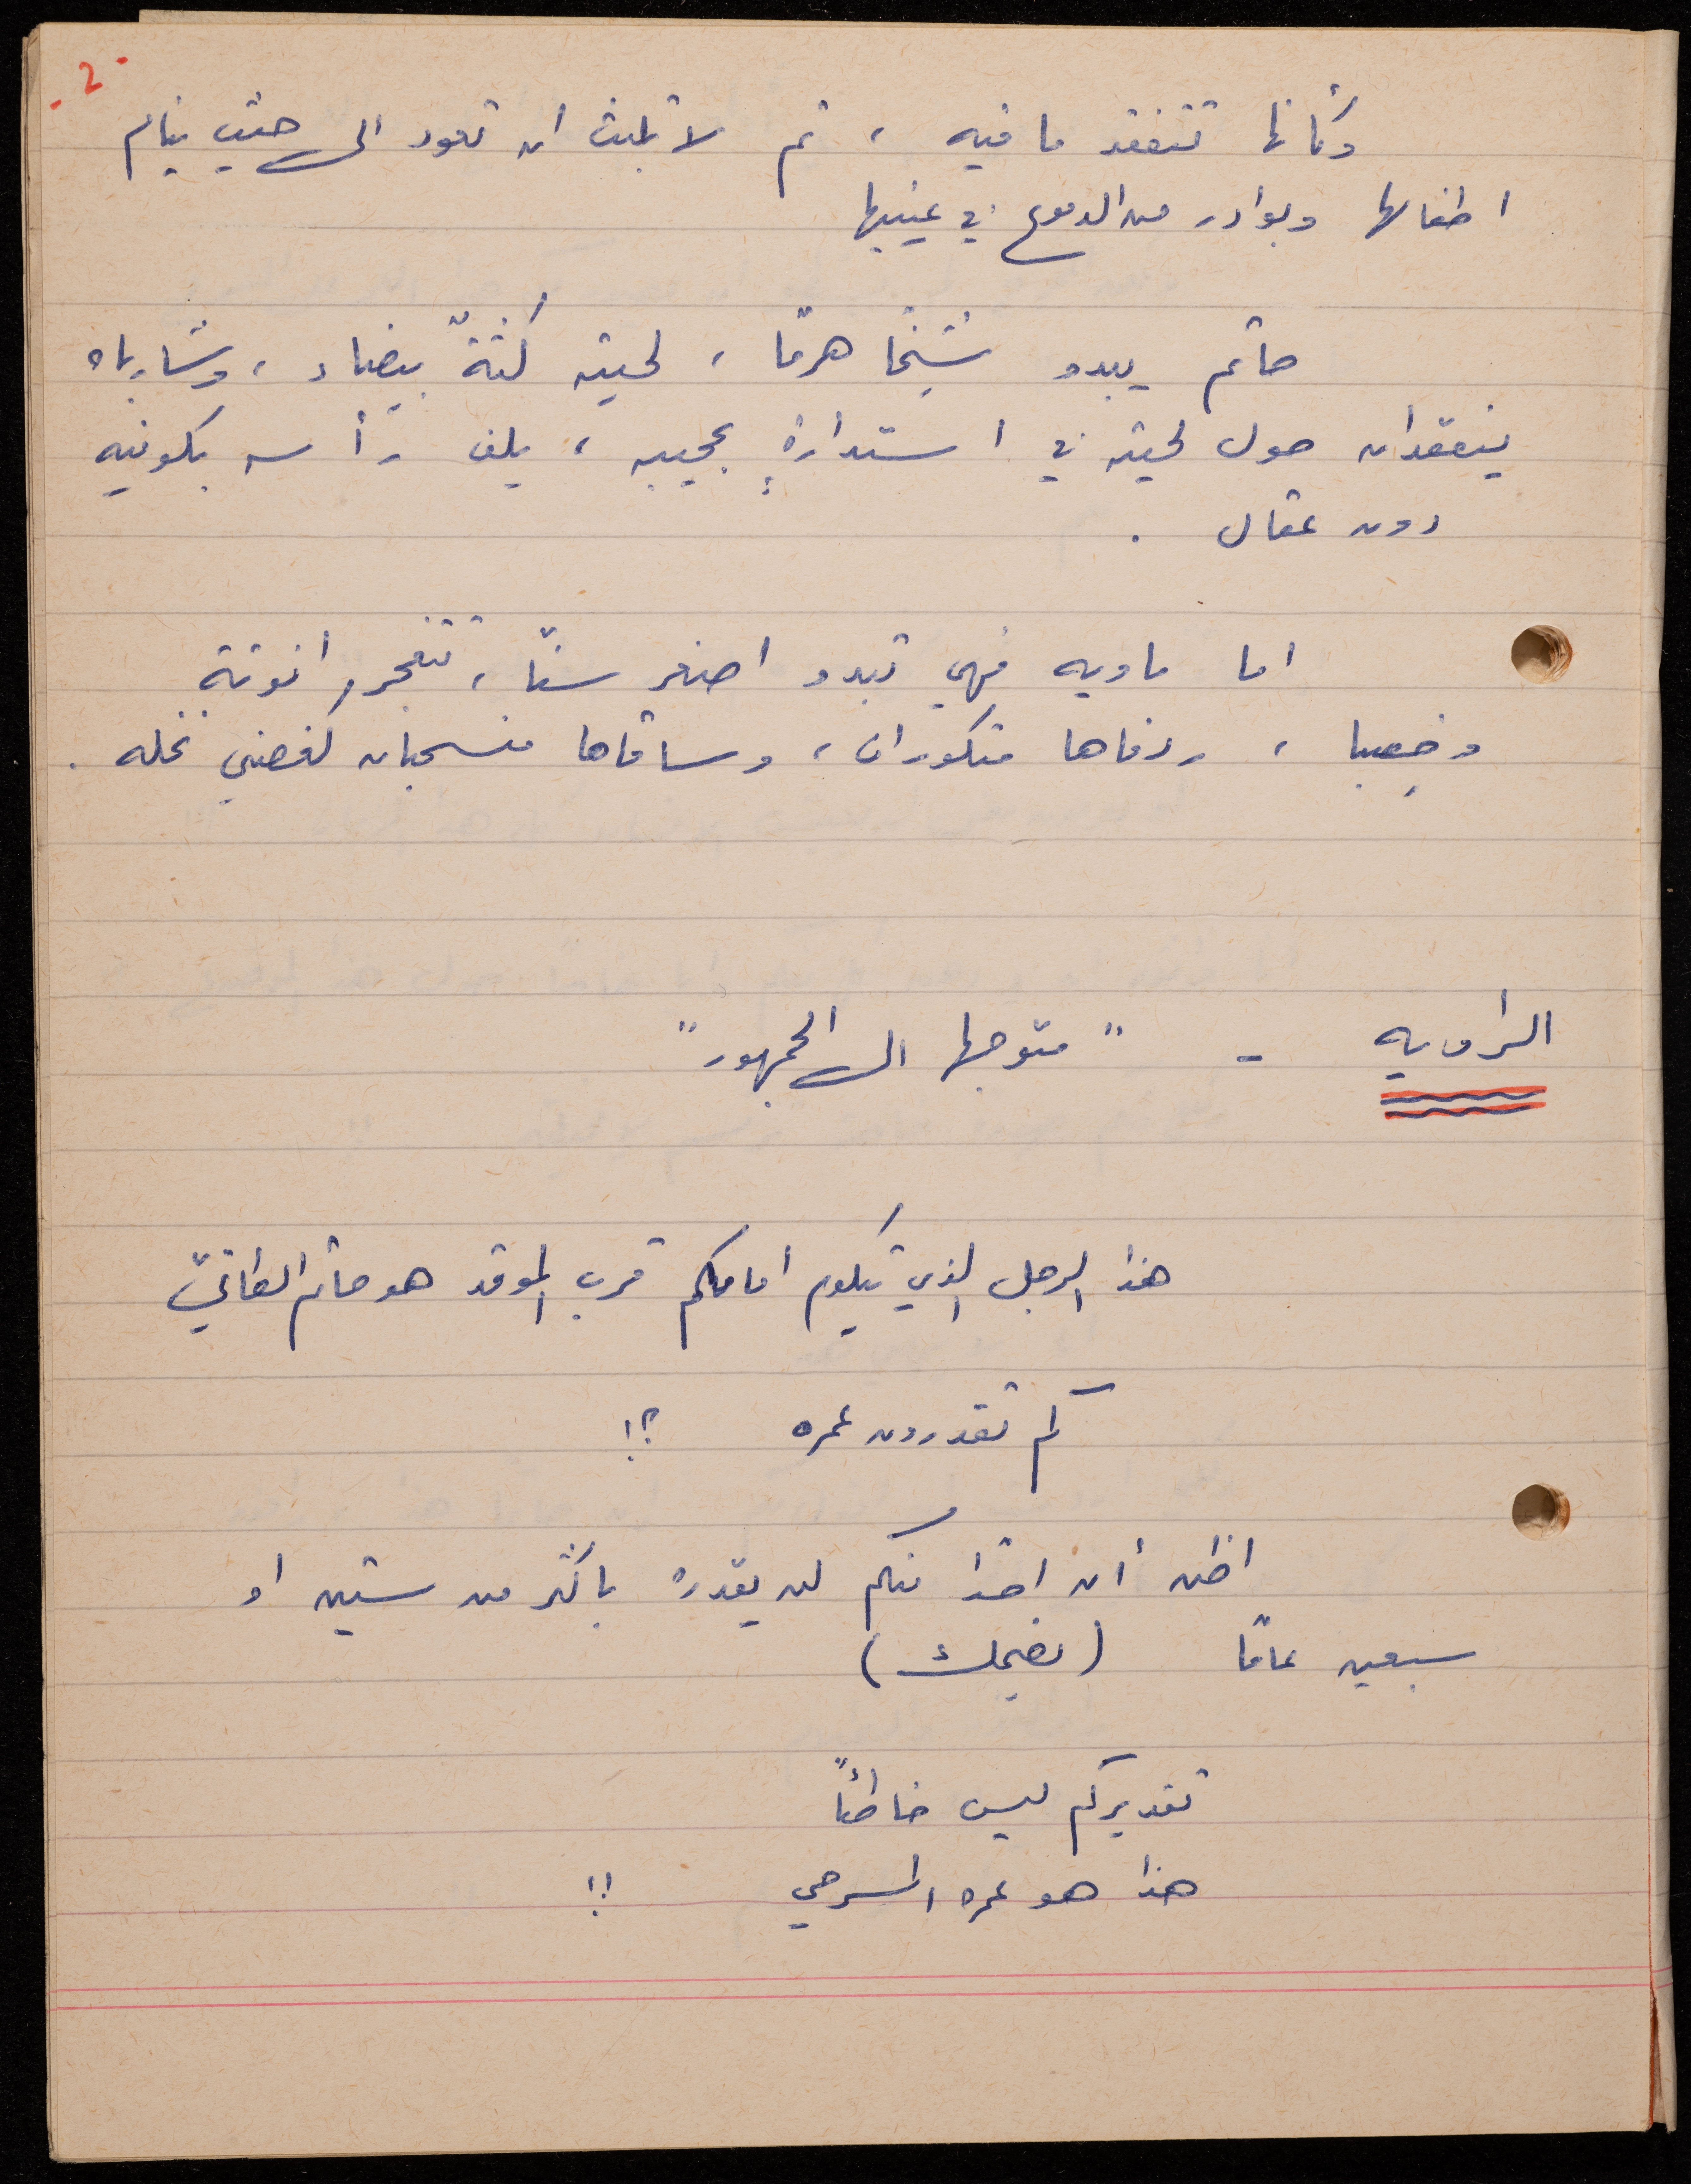 - 2 -
وكأنها تتفقد ما فيه ، ثم لا تلبث ان تعود الى حيث ينام
اطفالها وبوادر من الدموع في عينيها
حاتم يبدو شيخا هرمًا ، لحيته كثّة بيضاء ، وشارباه
ينعقدان حول لحيته في استدارةٍ عجيبه ، يلف رأسه بكوفيه
دون عقال .
اما ماويه فهي تبدو اصغر سنّا ، تتفجر انوثة
وخِصبا ، ردفاها متكوران ، وساقاها منسحبان كغصني نخله .
الراويه - " متوجها الى الجمهور "
هذا الرجل الذي يتكوم أمامكم قرب الموقد هو حاتم الطائيّ
كم تقدرون عمره ؟!
اظن أن احدًا منكم لن يقدره بأكثر من ستين او
سبعين عامًا (يضحك)
تقديركم ليس خاطئاً
هذا هو عمره المسرحي !!